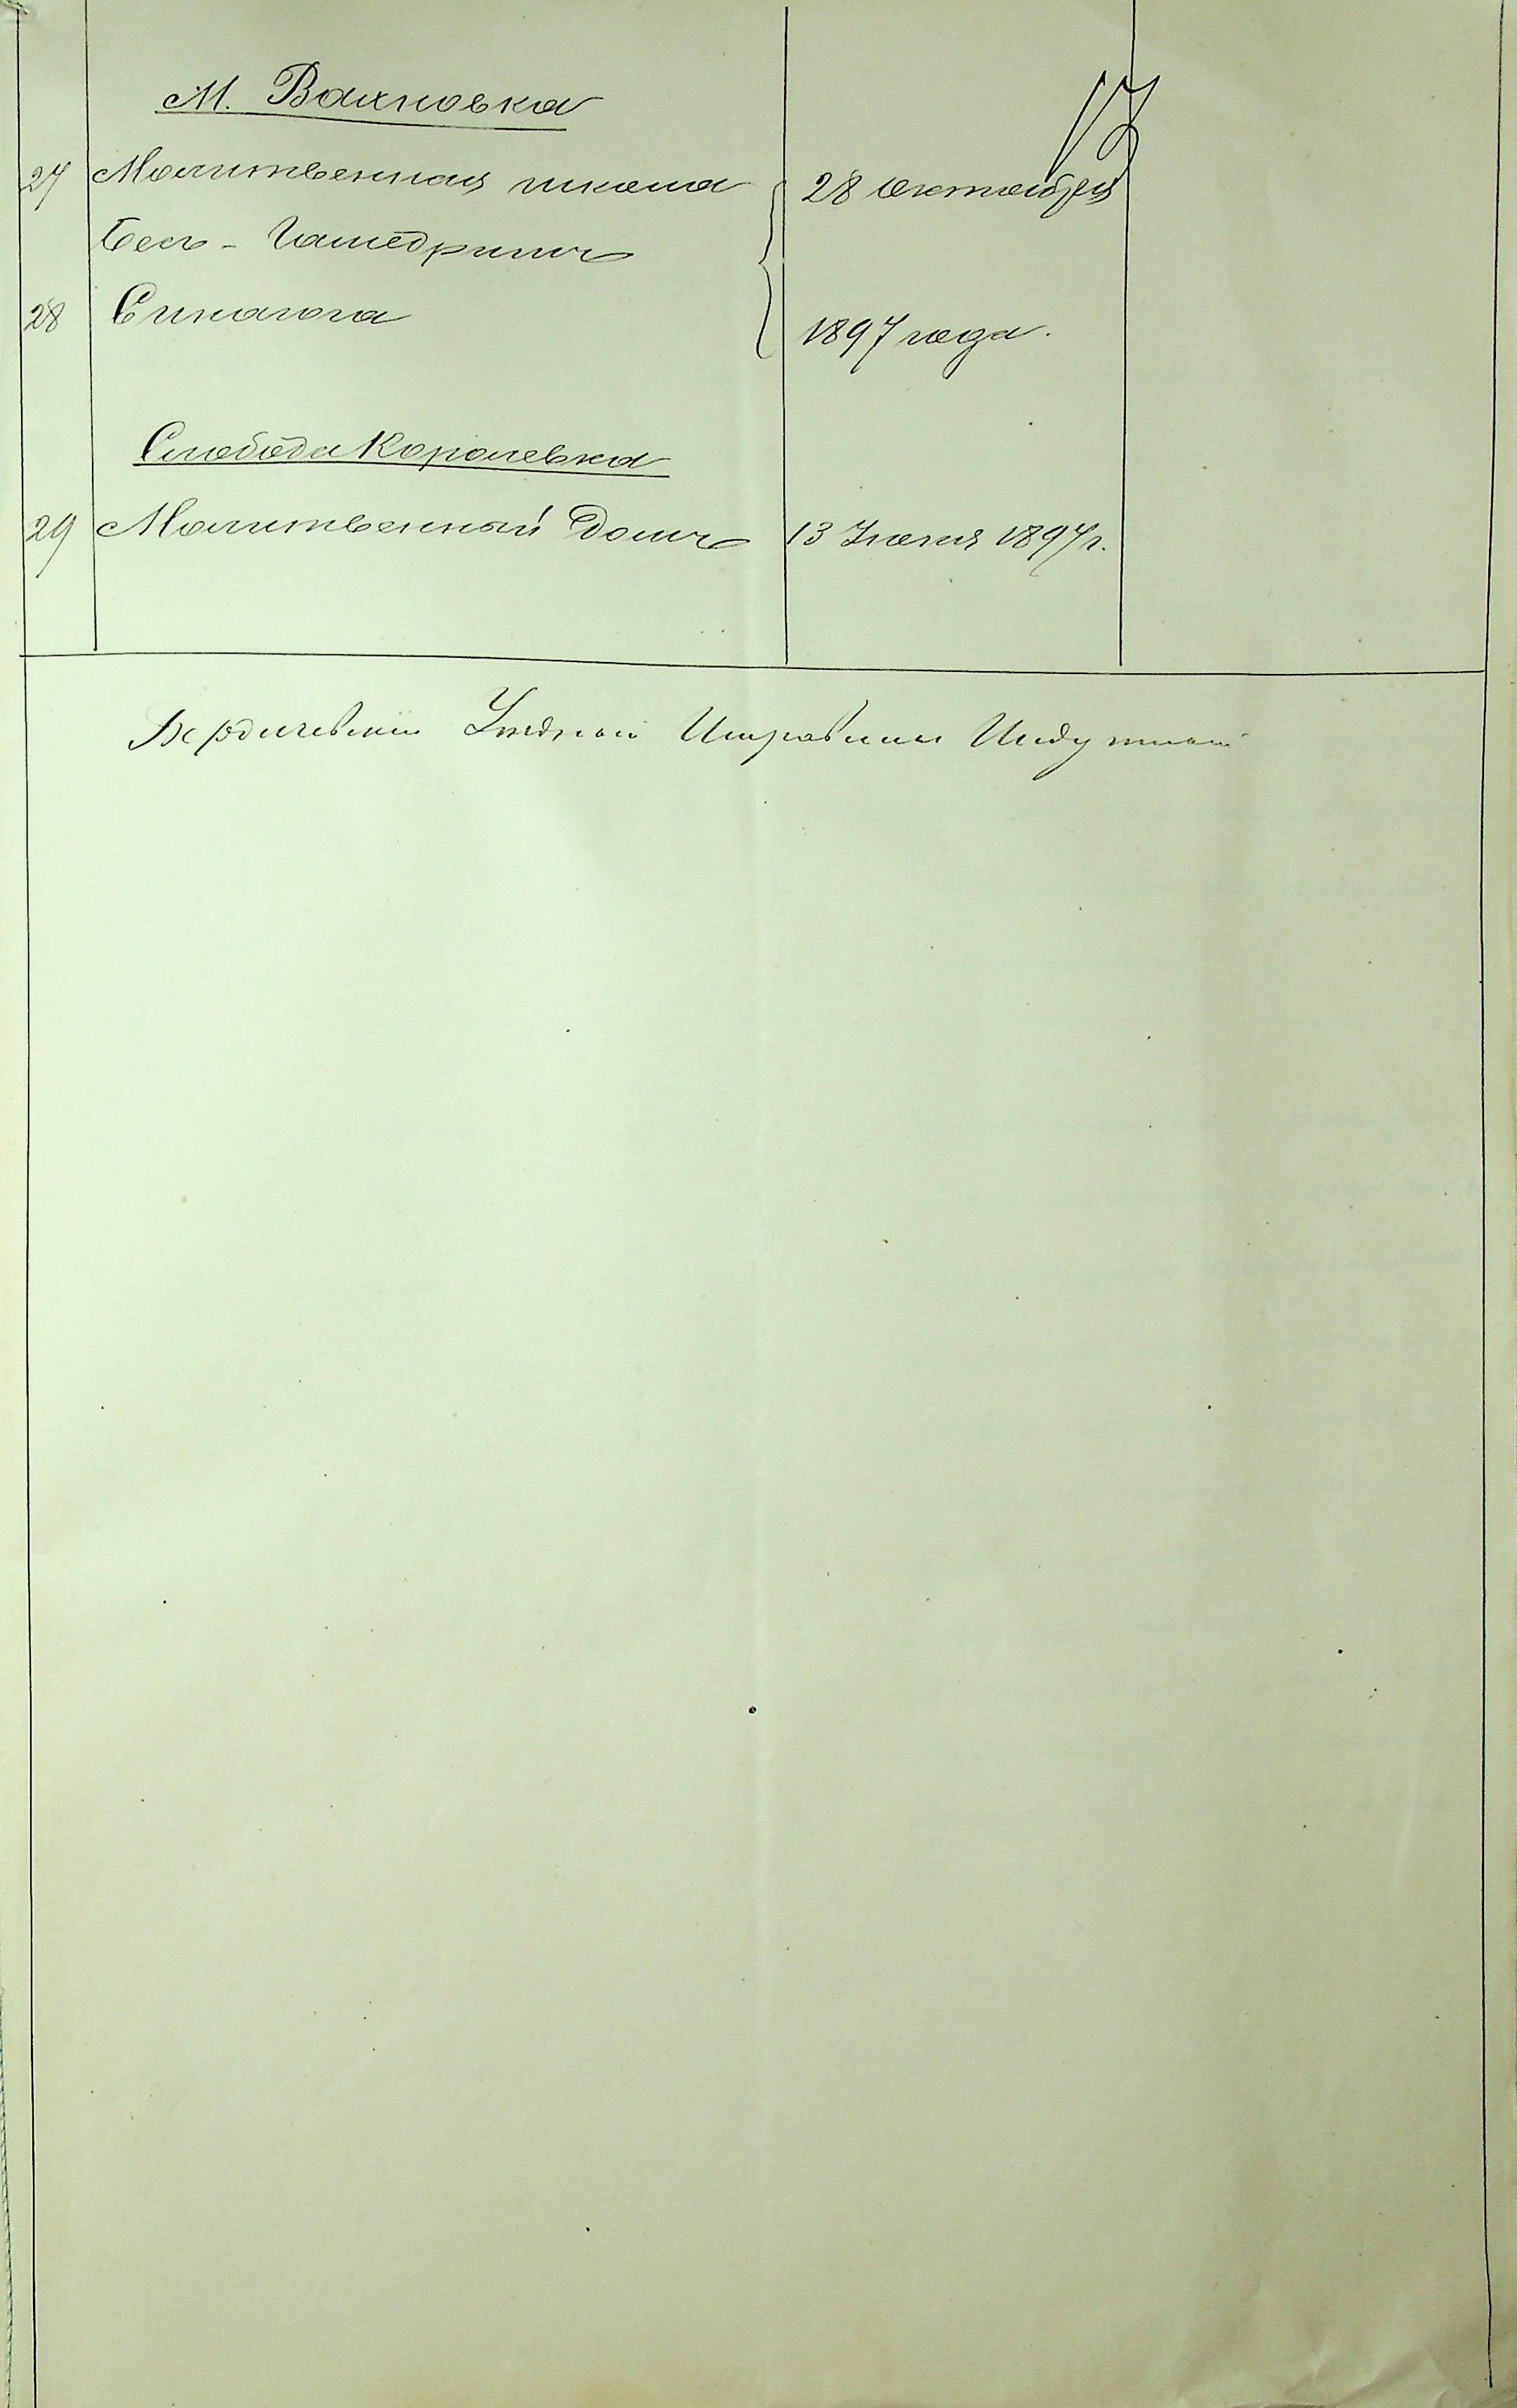 17
М. Вахновка
27 Молитвенная школа 28 октября
Бесъ-Гамедришъ
28 Синагога 1897 года.
Слобода Королевка
29 Молитвенный домъ 13 Іюня 1897 г.
Бердичевскій Уѣздный Исправникъ